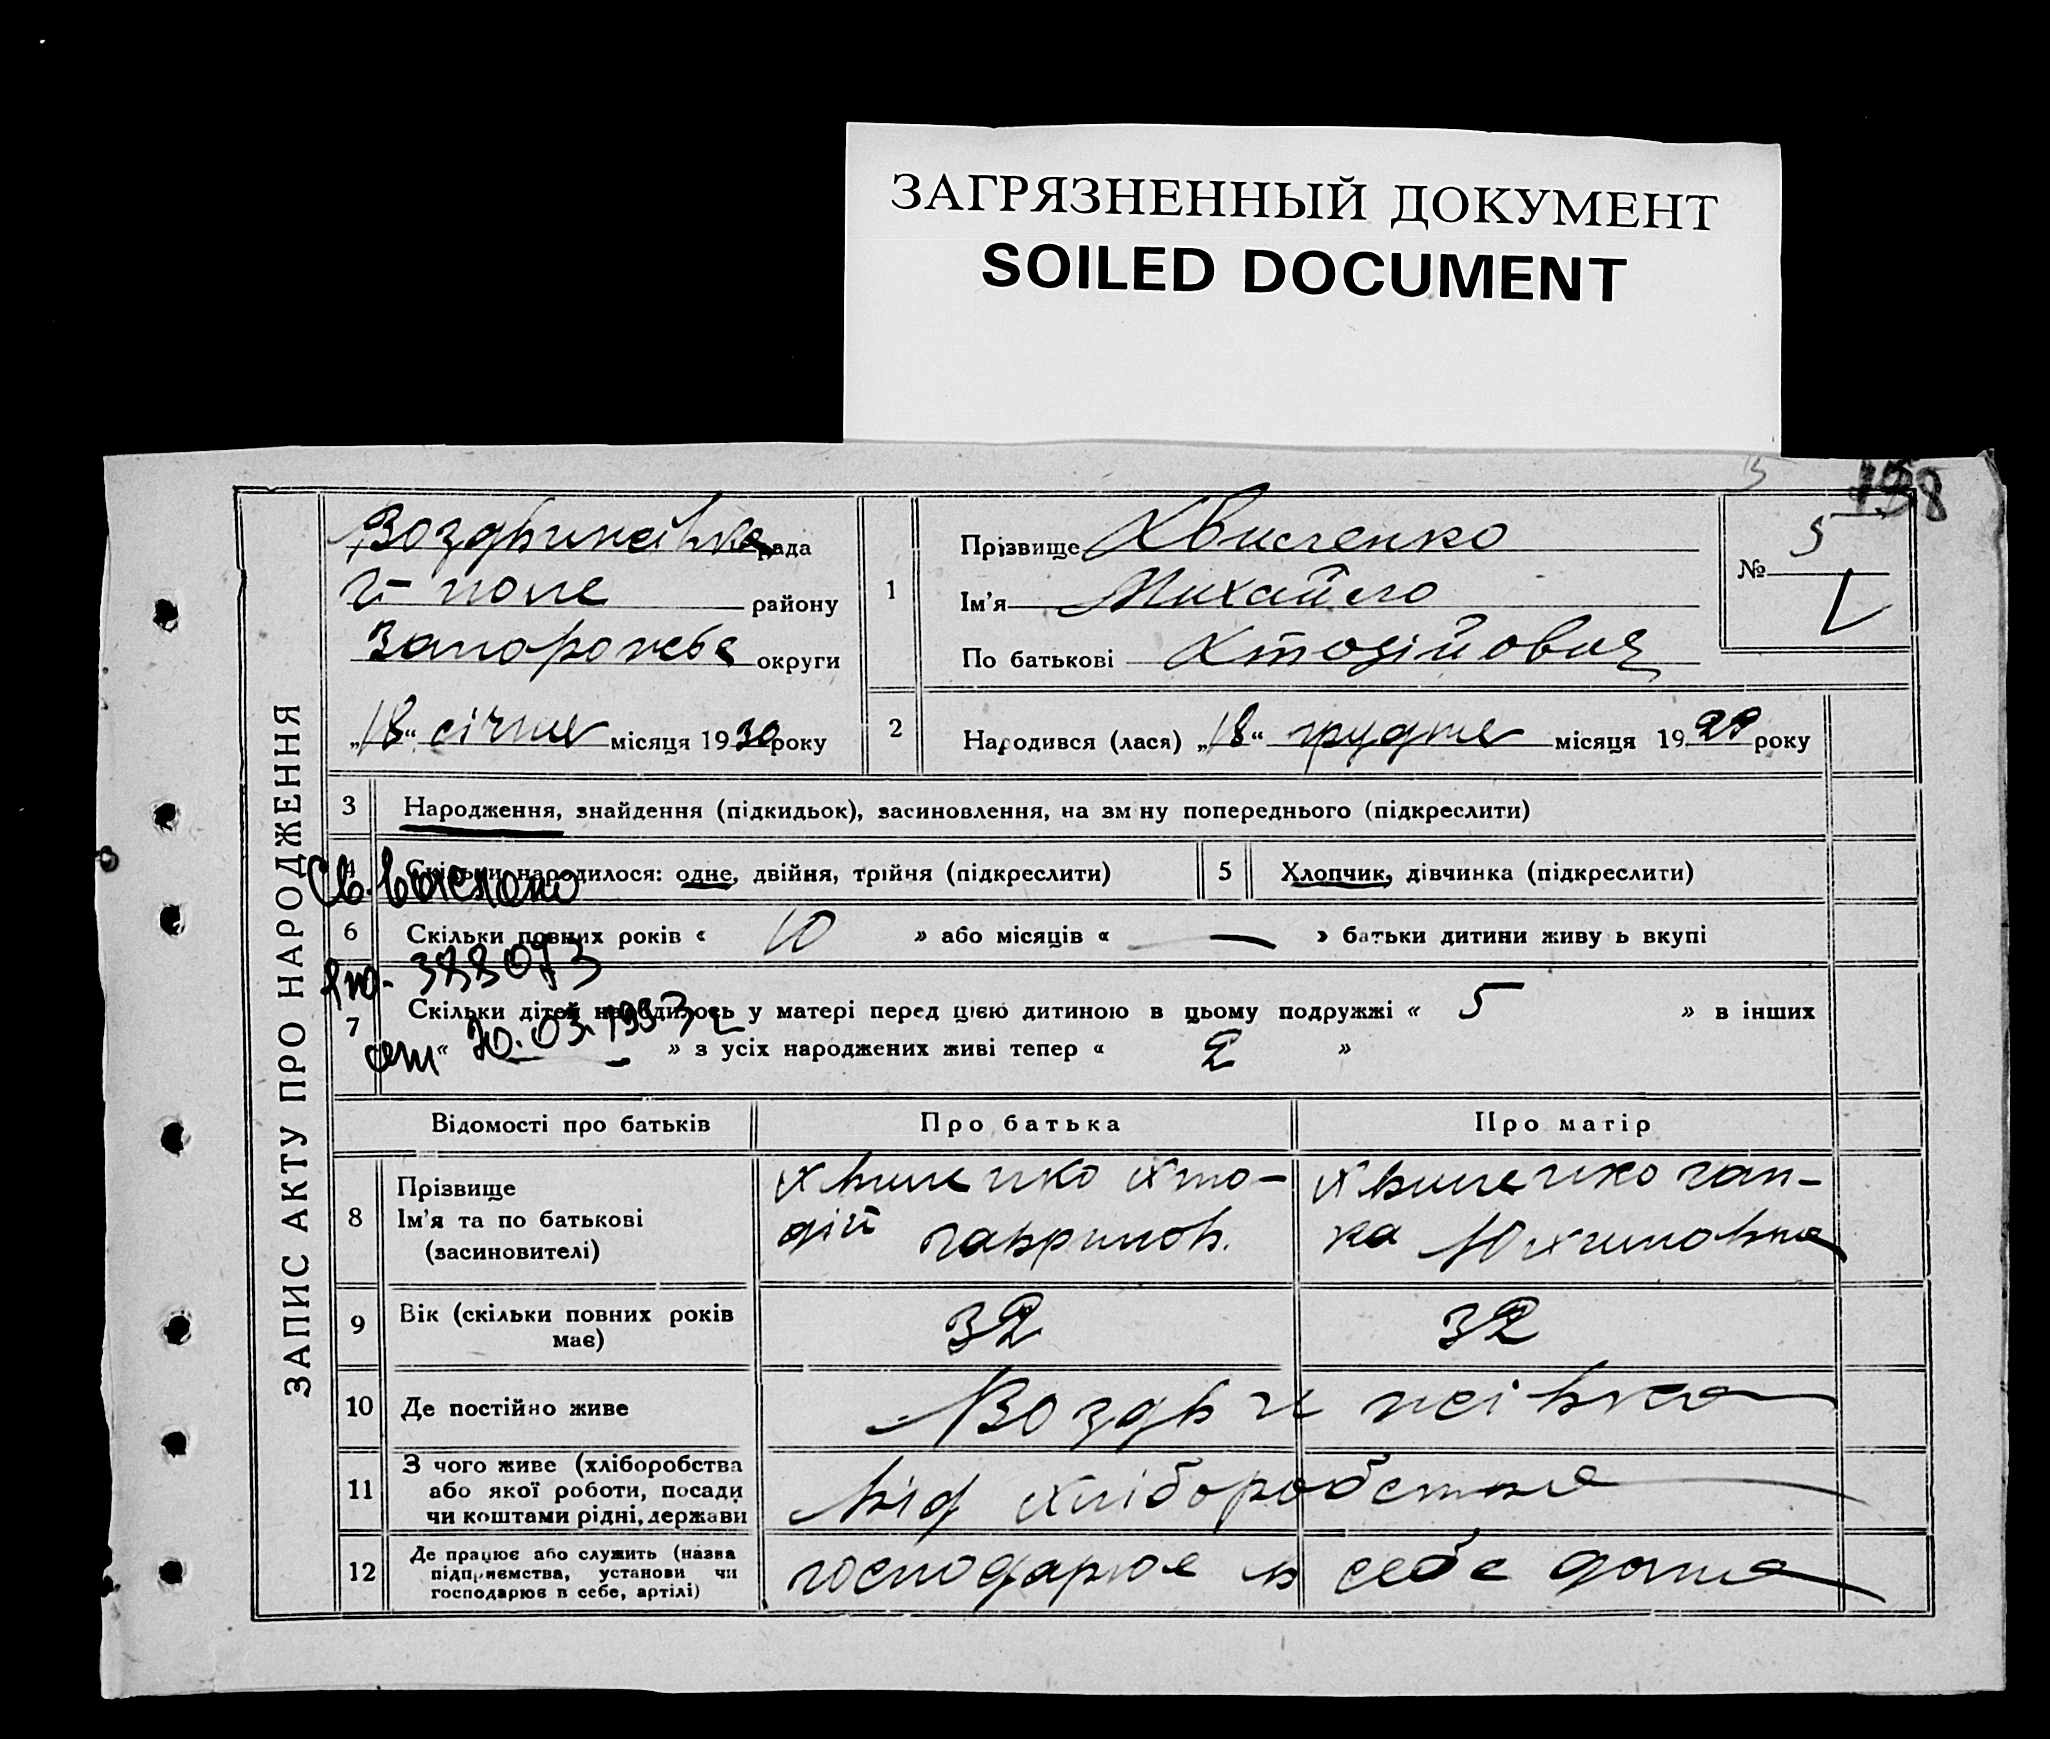 ЗАГРЯЗНЕННЫЙ ДОКУМЕНТ
SOILED DOCUMENT
198
ЗАПИС АКТУ ПРО НАРОДЖЕННЯ
Воздвижівка рада
Г-поле району
Запоріжжя округи
„18“ січня місяця 1930 року
1
Прізвище Хвиленко
Ім'я Михайло
По батькові Хтодійович
№ 5
2
Народився (лася) „18“ грудня місяця 1929 року
3 Народження, знайдення (підкидьок), засиновлення, на зм ну попереднього (підкреслити)
4 Скільки народилося: одне, двійня, трійня (підкреслити)
5 Хлопчик, дівчинка (підкреслити)
Св. выслано
6 Скільки повних років « 10 » або місяців « — » батьки дитини живу ь вкупі
388073
7 Скільки дітей народилось у матері перед цією дитиною в цьому подружжі « 5 » в інших
« — » з усіх народжених живі тепер « 2 »
от 20.03.1957
Відомості про батьків Про батька Про матір
8 Прізвище Ім'я та по батькові (засиновителі)
Хвиленко Хтодій Гаврилов.
Хвиленко Ганка Юхимовна
9 Вік (скільки повних років має) 32 32
10 Де постійно живе Воздвижівка
11 З чого живе (хліборобства або якої роботи, посади чи коштами рідні, держави від хліборобства
12 Де працює або служить (назва підприємства, установи чи господарює в себе, артілі) господарює в себе дома